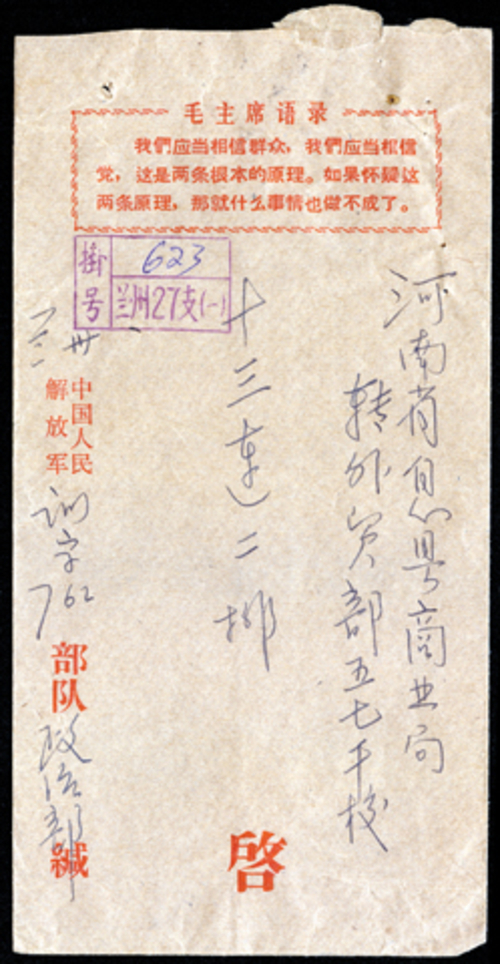 毛主席语录
我們应当相信群众，我們应当相信
党，这是两条根本的原理。如果怀疑这
两条原理，那就什么事情也做不成了。
掛号
623
兰州27支(一)
河南省息县商业局
转外贸部五七干校
十三連二排
兰州
中国人民
解放军
训字
762
部队
政治部
緘
啓